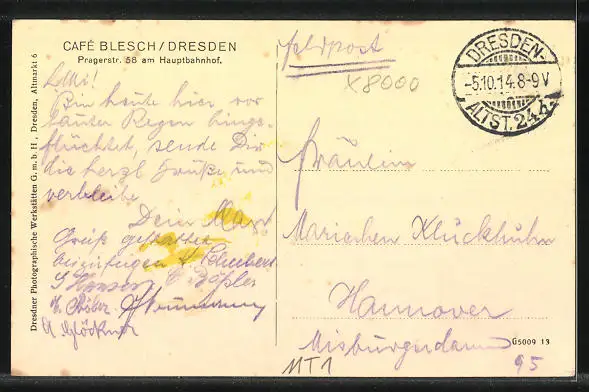 CAFÉ BLESCH / DRESDEN
Pragerstr. 58 am Hauptbahnhof.
Dresdner Photographische Werkstätten G. m. b. H., Dresden, Altmarkt 6
Bin heute hier vor
lauter Regen hinge-
flüchtet, sende Dir
die herzl Grüße und
verbleibe
Dein Max.
Gruß gestatten
beizufügen
Feldpost
x8000
DRESDEN-
-5.10.14.8-9V
ALTST. 24 b
Fräulein
Mariechen Kluckhuhn
Hannover
Misburgerdamm
95
G5009 13
MT1